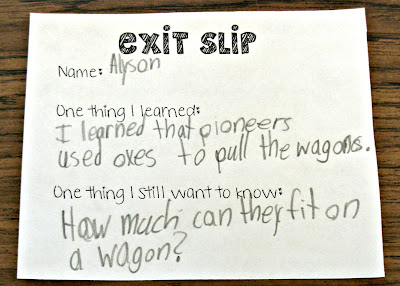 EXIT SLIP
Name: Alyson
One thing I learned:
I learned that pioneers
used oxes to pull the wagons.
One thing I still want to know:
How much can they fit on
a wagon?